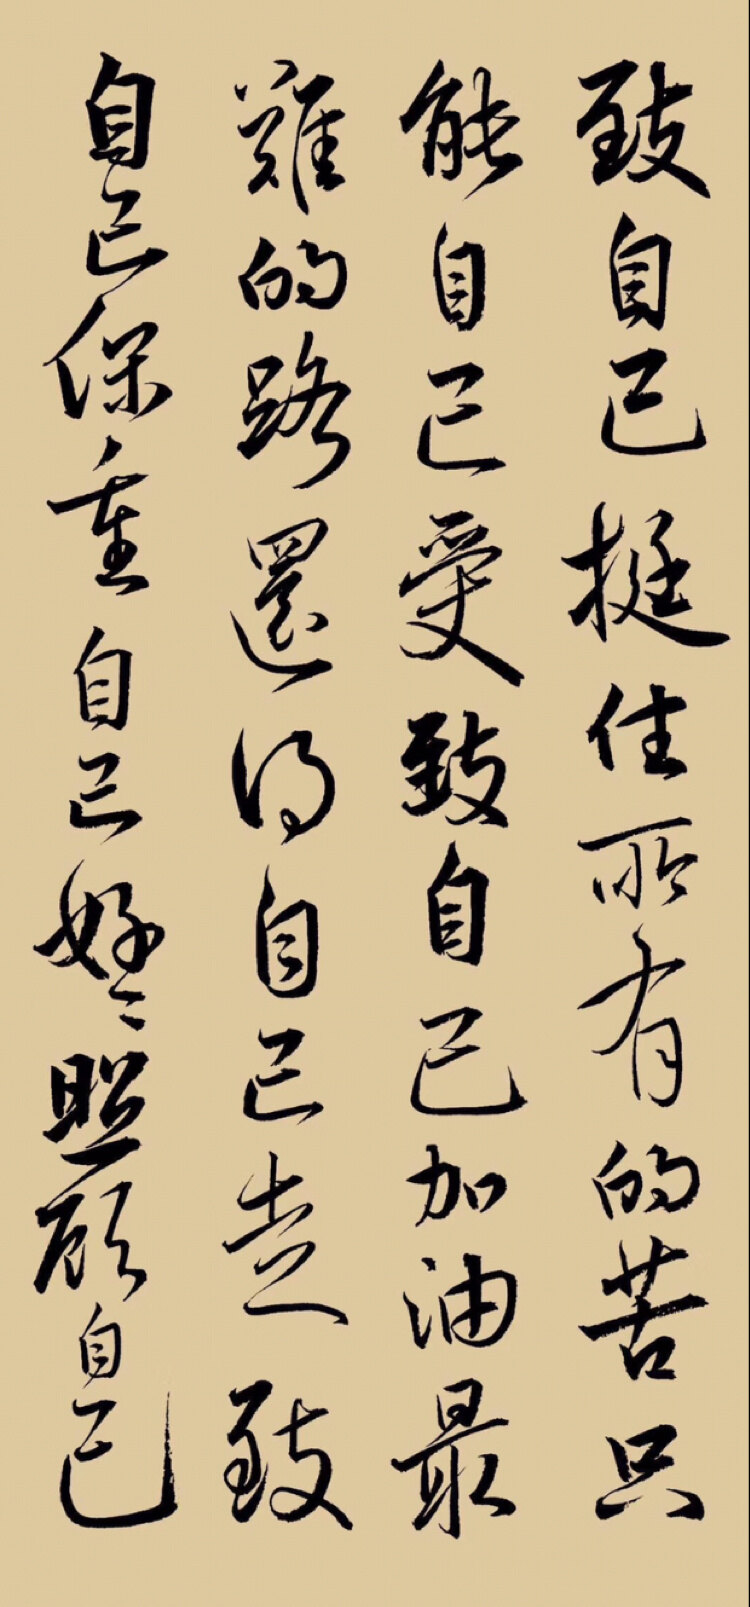 致自己挺住所有的苦只
能自己受致自己加油最
難的路還得自己走致
自己保重自己好好照顾自己